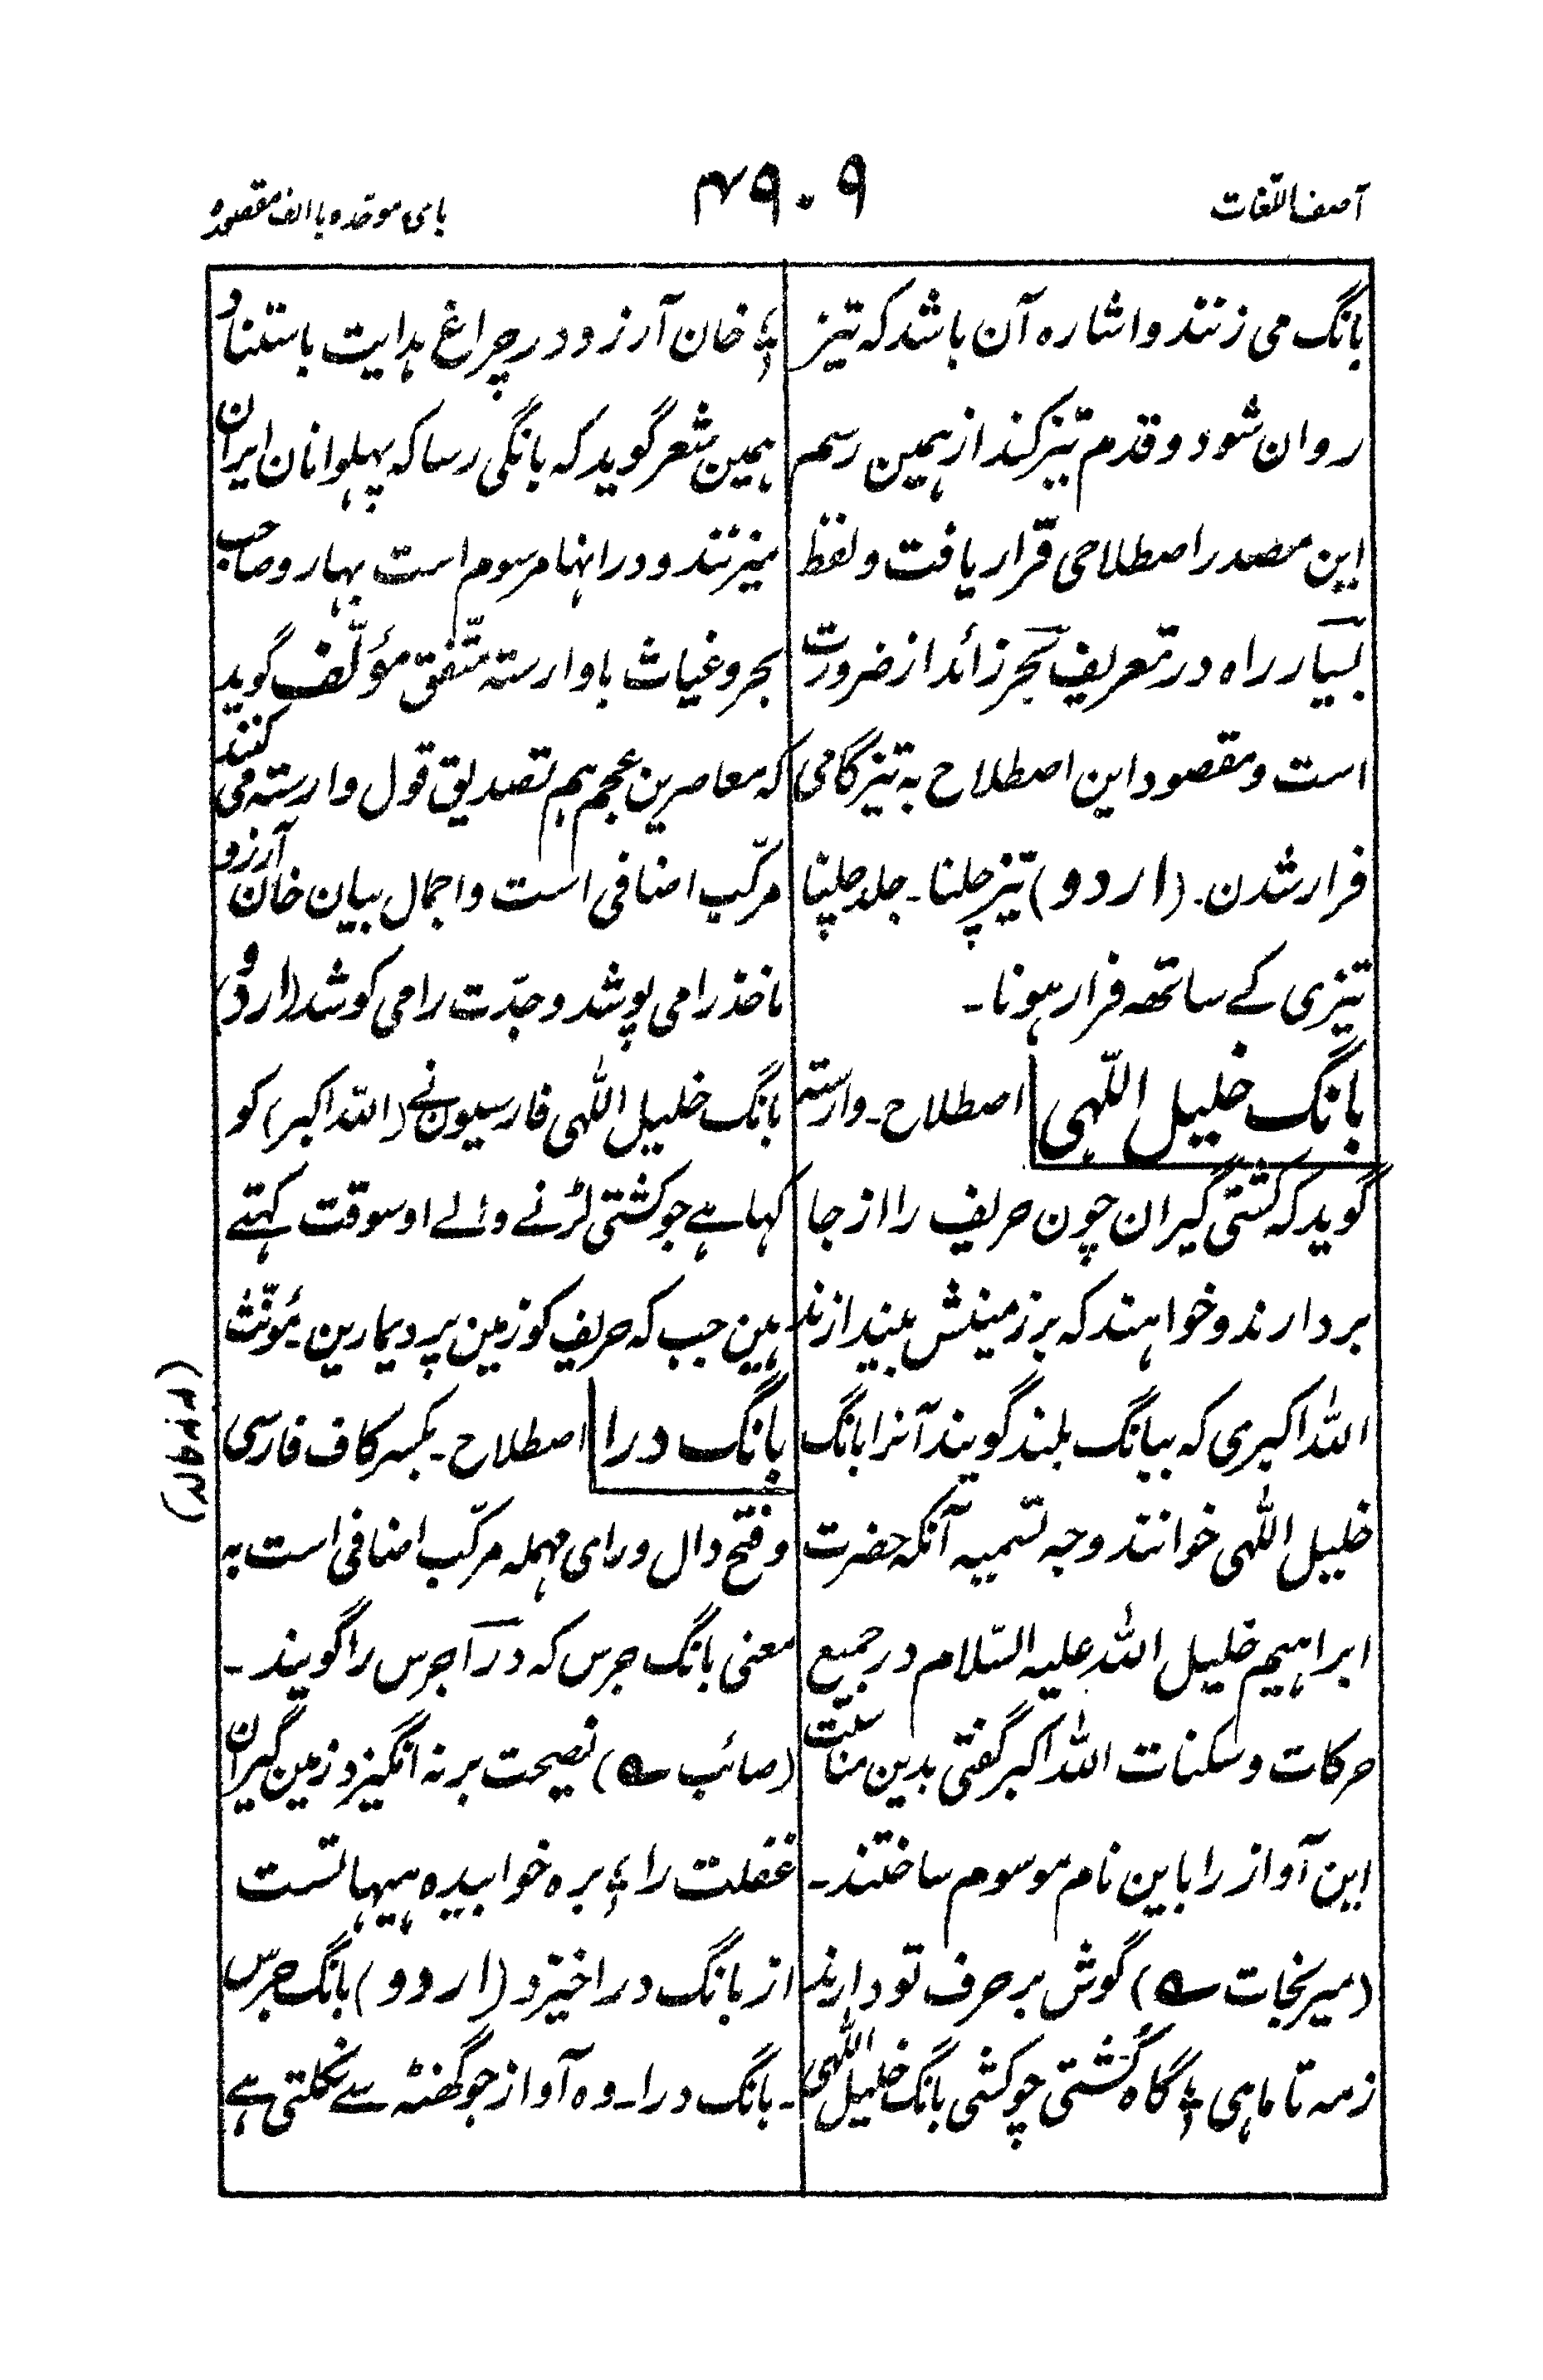 آصف اللّغات
۴۹۰۹
بای موحّده با الف مقصوره
بانگ می زنند و اشاره آن باشد که تیز
روان شود و قدم تیز کند از همین رسم
این مصدر اصطلاحی قرار یافت و لفظ
بسیار راه در تعریف بحر زائد از ضرورت
است و مقصود این اصطلاح به تیز گامی
فرار شدن۔ (اردو) تیز چلنا۔ جلد چلنا
تیزی کے ساتھہ فرار ہونا۔
بانگ خلیل اللّہی اصطلاح۔ وارستہ
گوید کہ کشتی گیران چون حریف را از جا
بردارند و خواهند کہ بر زمینش بیندازند
اللہ اکبری کہ ببانگ بلند گویند آنرا بانگ
خلیل اللہی خوانند وجہ تسمیہ آنکہ حضرت
ابراہیم خلیل اللہ علیہ السّلام در جمیع
حرکات و سکنات اللہ اکبر گفتی بدین مناسبت
این آواز را باین نام موسوم ساختند۔
(میر نجات ؎) گوش بر حرف تو دارند
زمہ تا ماہی ؛ گاہ کُشتی چو کشی بانگ خلیل اللہی
؛ خان آرزو در چراغ ہدایت باستناد
ہمین شعر گوید کہ بانگی رسا کہ پہلوانان ایران
میزنند و در انہا مرسوم است بہار و صاحب
بحر و غیاث با وارستہ متّفق مؤلّف گوید
کہ معاصرین عجم ہم تصدیق قول وارستہ می کنند
مرکّب اضافی است و اجمال بیان خان آرزو
ماخذ را می پوشد و جدّت را می کوشد (اردو)
بانگ خلیل اللہی فارسیون نے (اللہ اکبر) کو
کہا ہے جو کشتی لڑنے والے اوسوقت کہتے
ہین جب کہ حریف کو زمین پر دیمارین۔ مؤنّث
بانگ درا اصطلاح۔ بکسر کاف فارسی
و فتح دال و رای مہملہ مرکّب اضافی است بہ
معنی بانگ جرس کہ درا جرس را گویند۔
(صائب ؎) نصیحت بر نہ انگیزد زمین گیران
غفلت را ؛ برہ خوابیدہ ہیہاتست
از بانگ درا خیزد (اردو) بانگ جرس
۔ بانگ درا۔ وہ آواز جو گھنٹہ سے نکلتی ہے